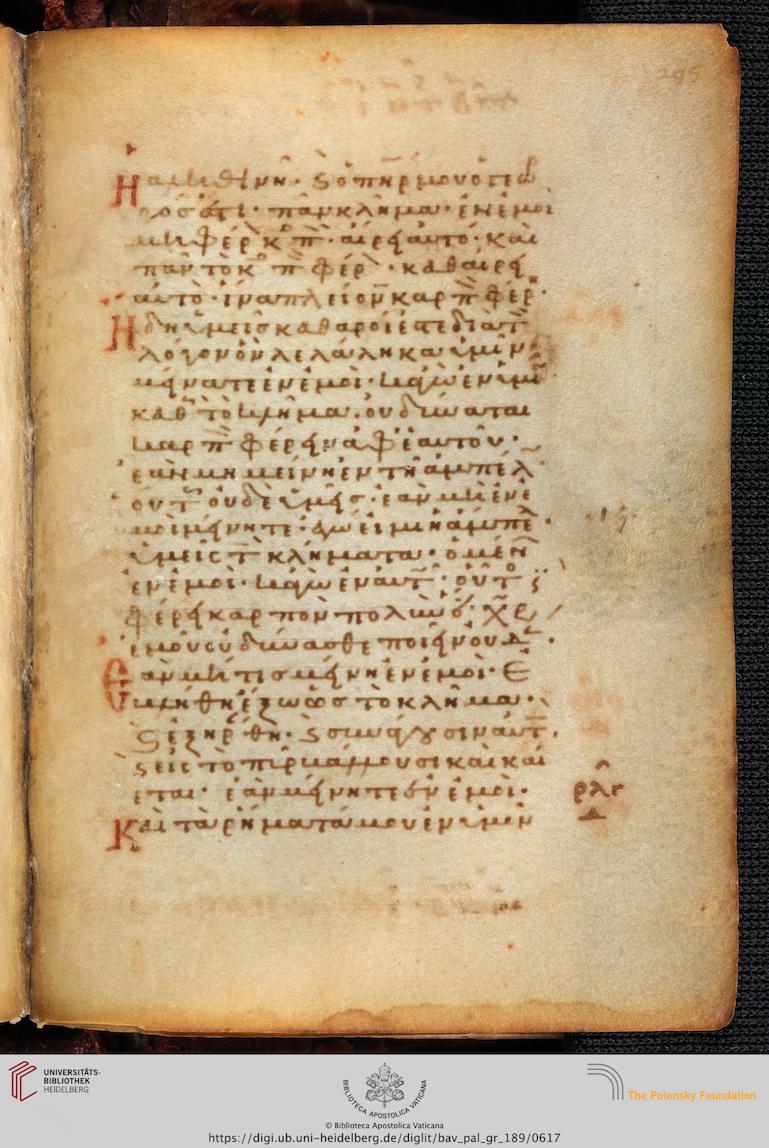 295
Ἡ ἀληθινὴ· ϛ ὁ πη̅ρ μου ὁ γεω
ργός ἐστι· πᾶν κλῆμα· ἐν ἐμοὶ
μὴ φέρ κ π· αἴρει αὐτό· καὶ
πᾶν τὸ κ π φέρ · καθαίρει
αὐτὸ· ἵνα πλείον καρπ φέρ·
Ἤδη ὑμεῖς καθαροί ἐστε διὰ τ
λόγον ὃν λελάληκα ὑμῖν·
μείνατε ἐν ἐμοὶ· κἀγὼ ἐν ὑμῖ
καθ τὸ κλῆμα· οὐ δύναται
καρπ φέρειν ἀφ ἑαυτοῦ·
ἐὰν μὴ μείνη ἐν τῆ ἀμπέλ
οὕτ οὐδὲ ὑμεῖς· ἐὰν μὴ ἐν ἐ
μοὶ μείνητε· ἐγώ εἰμι ἡ ἄμπε
ὑμεῖς τ κλήματα· ὁ μέν
ἐν ἐμοὶ· κἀγὼ ἐν αὐτ· οὗτο
φέρει καρπὸν πολὺν ὅ χω
ἐμοῦ οὐ δύνασθε ποιεῖν οὐδ·
Ἐὰν μή τις μείνη ἐν ἐμοὶ· ἐ
βλήθη ἔξω ὡς τὸ κλῆμα·
ϛ ἐξηρ θη· ϛ συνάγουσιν αὐτ·
ϛ εἰς τὸ πῦρ βάλλουσι καὶ καί
εται· ἐὰν μείνητε ἐν ἐμοὶ·
Καὶ τὰ ρήματά μου ἐν ὑμῖν
ρλγ
UNIVERSITÄTS-
BIBLIOTHEK
HEIDELBERG
BIBLIOTECA APOSTOLICA VATICANA
The Polonsky Foundation
© Biblioteca Apostolica Vaticana
https://digi.ub.uni-heidelberg.de/diglit/bav_pal_gr_189/0617